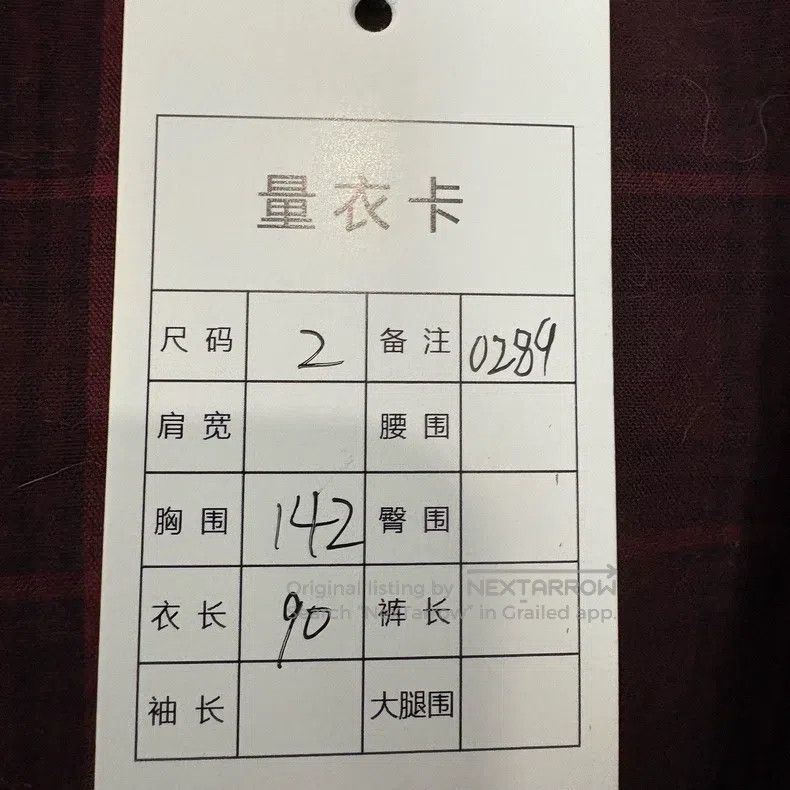 量衣卡
尺码 2 备注 0289
肩宽 腰围
胸围 142 臀围
Original listing by NEXTARROW
衣长 90 裤长
Search "NextArrow" in Grailed app.
袖长 大腿围